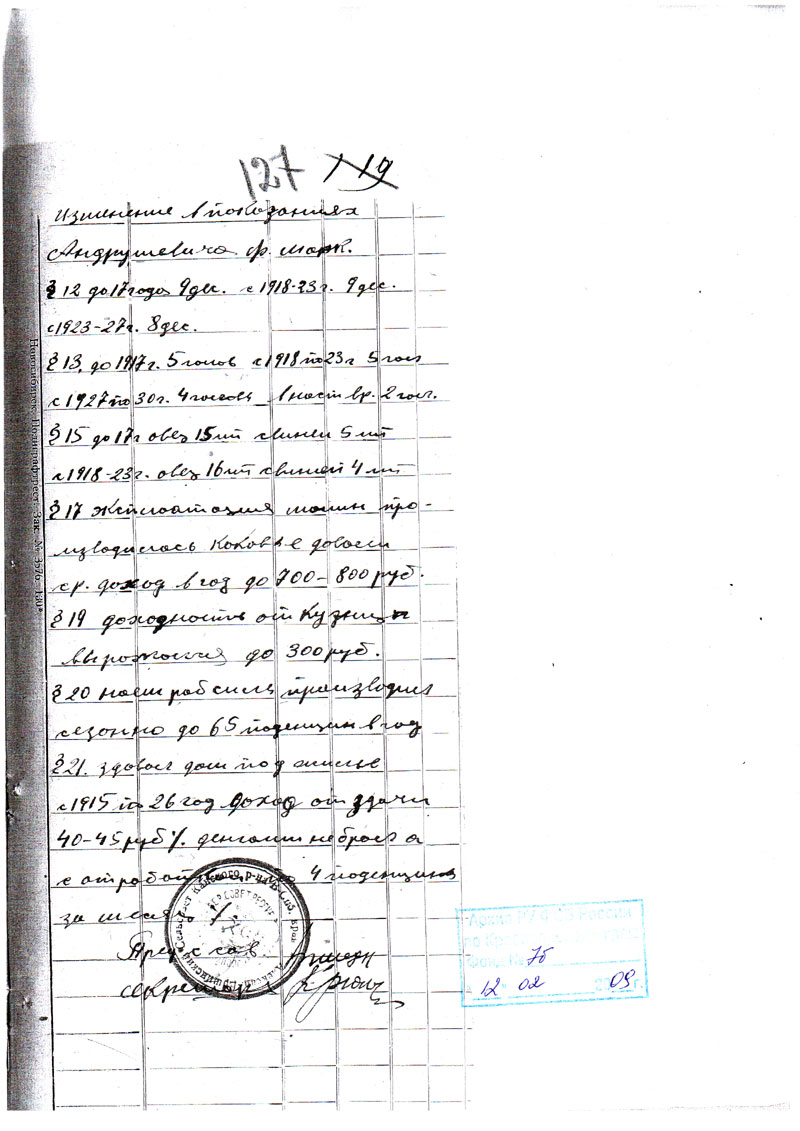 127 119
Изменение в показаниях
Андрушевича ф. марк.
§ 12 до 17 года 9 дес. с 1918-23 г. 9 дес.
с 1923-27 г. 8 дес.
§ 13. до 1917 г. 5 голов с 1918 по 23 г 5 гол
с 1927 по 30 г. 4 головы в наст вр. 2 гол.
§ 15 до 17 г овец 15 шт свиней 5 шт
с 1918-23 г. овец 16 шт свиней 4 шт
§ 17 Эксплоатация машин про-
изводилась
ср. доход в год до 700-800 руб.
§ 19 доходность от Кузницы
до 300 руб.
§ 20 наем раб силы производил
сезонно до 65 поденщин в год
§ 21. здавал дом под жилье
с 1915 по 26 год доход от здачи
40-45 руб % деньгами не брал а
4 поденщины
за месяц
Пред с сов
секретар
Новосибирск Полиграфтрест. Зак. № 3576
Сельсовет Канского р-на
Архив РУ ФСБ России
76
12 02 09 г.